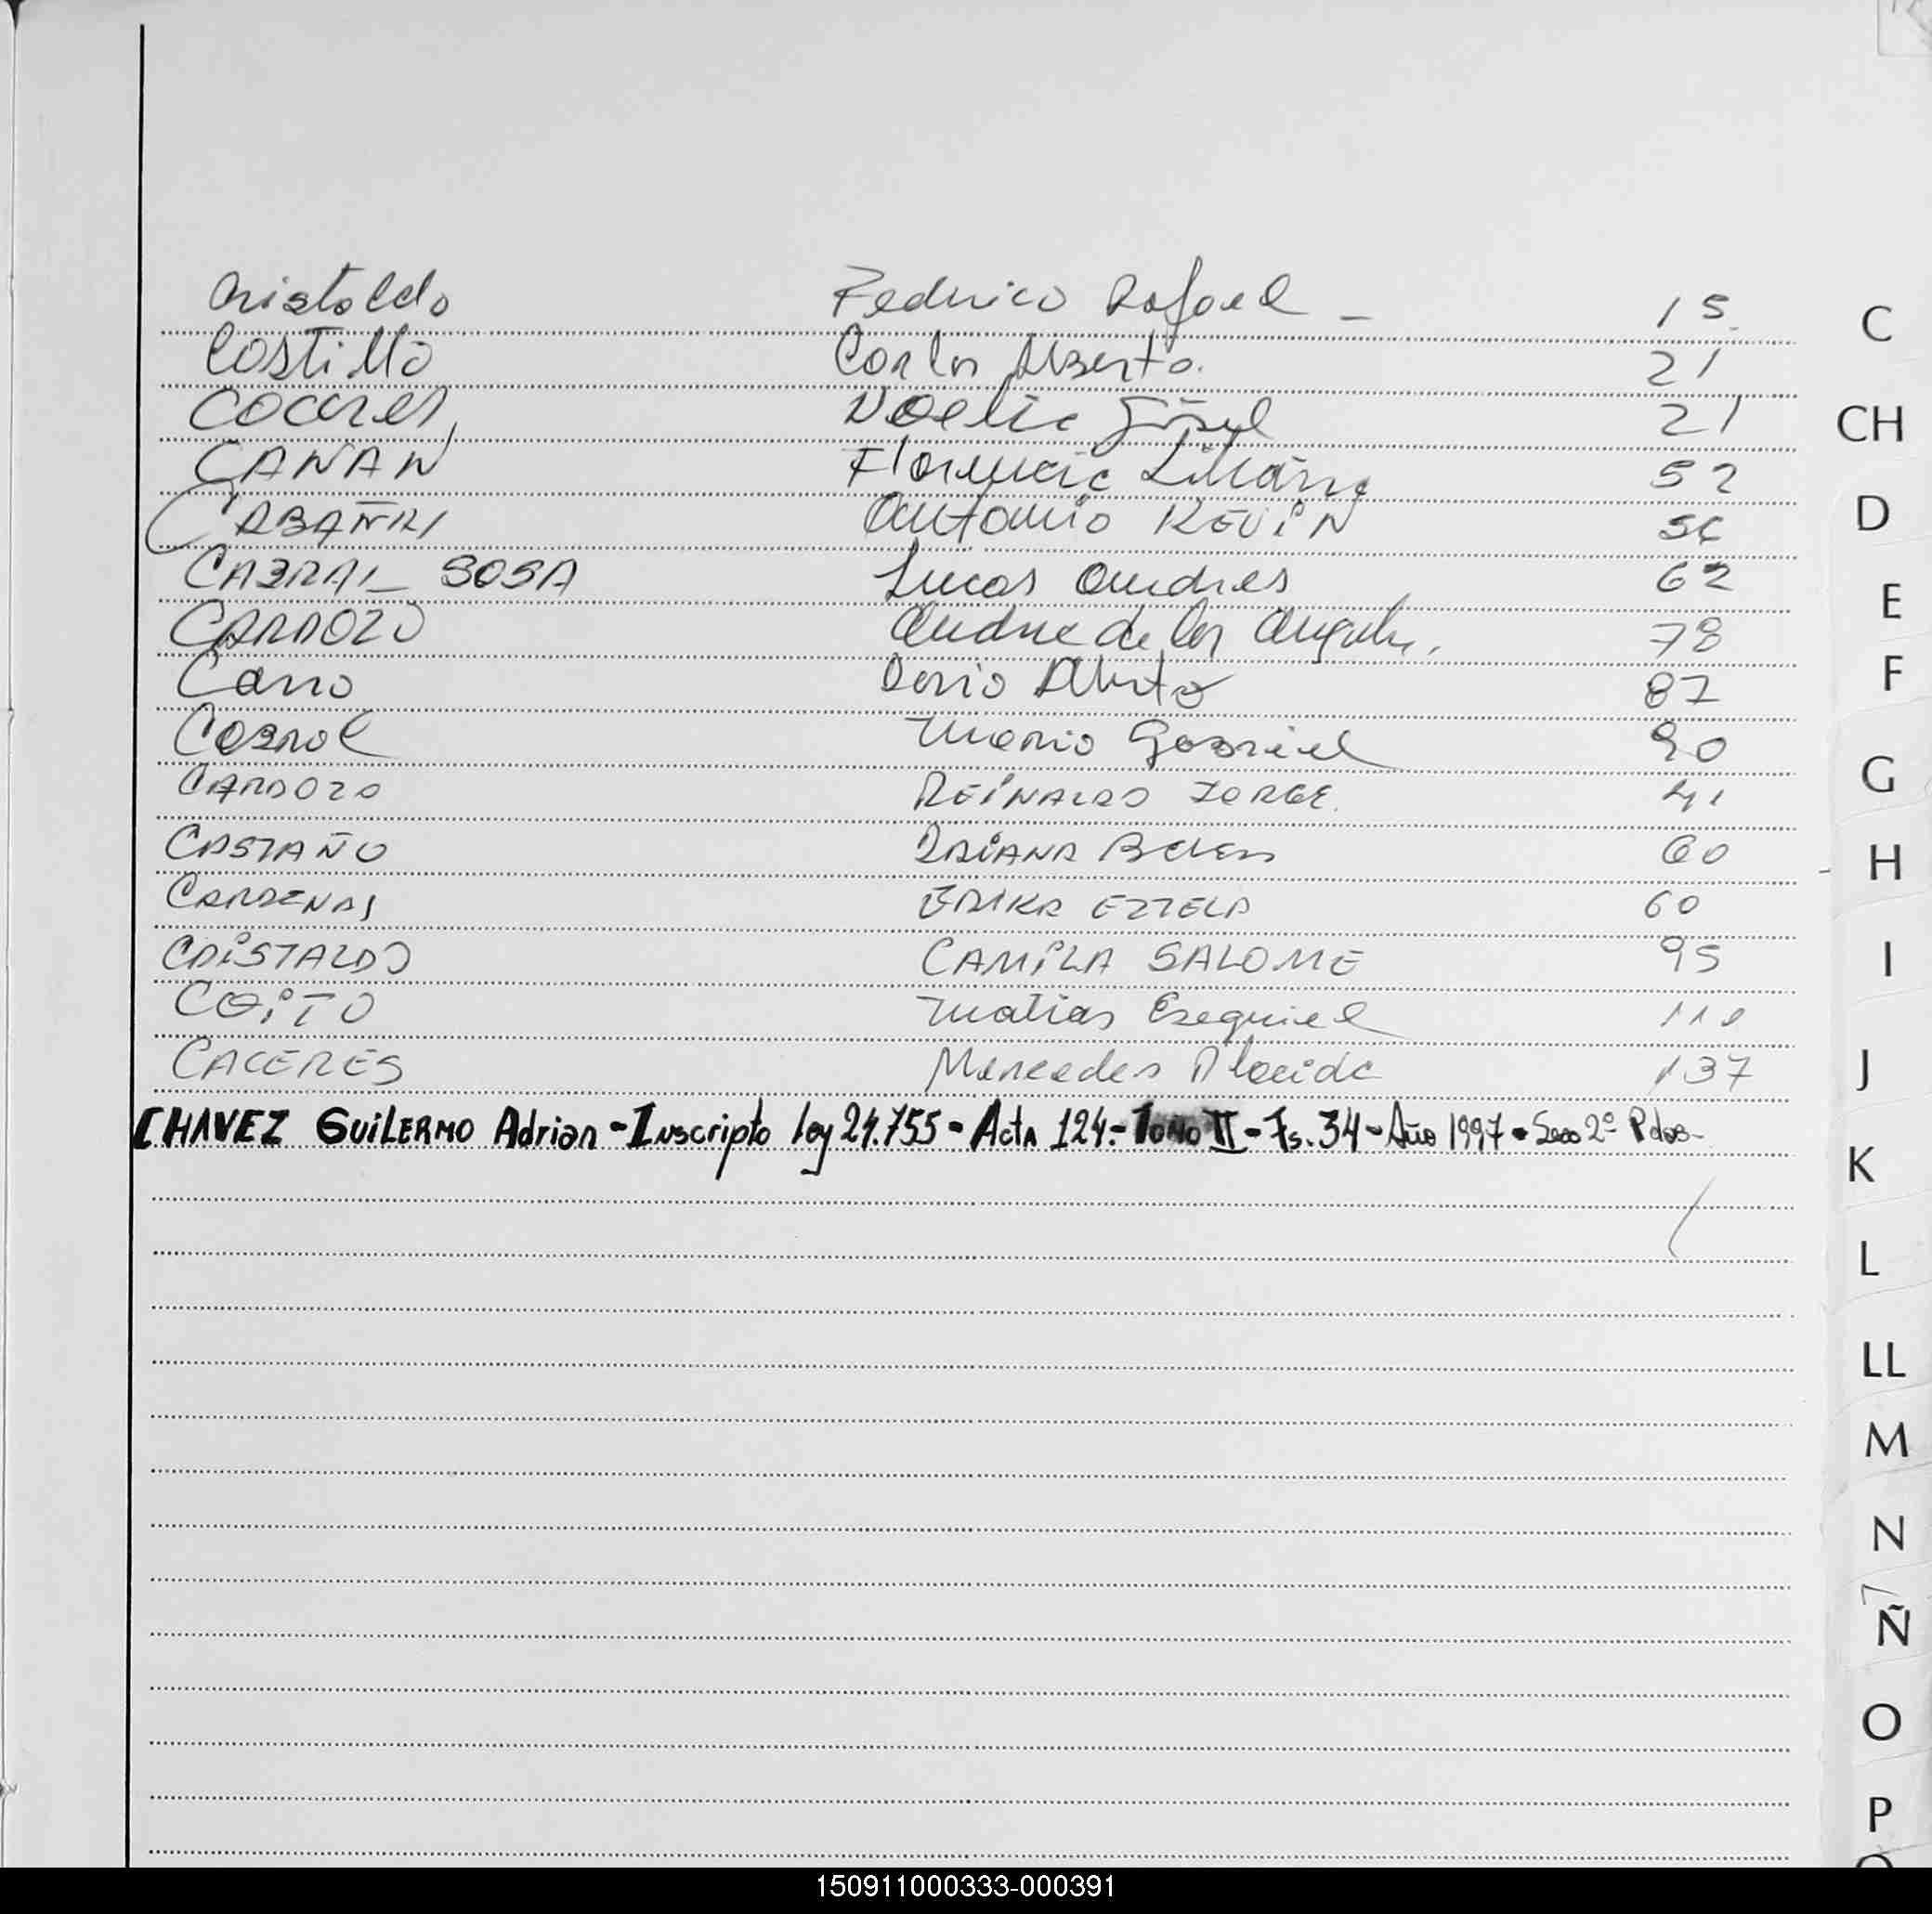 Cristaldo Federico Rafael - 15
Castillo Carlos Alberto. 21
Caceres, Noelia Gisel 21
CANAN Florencia Liliana 52
CABAÑRI Antonio KEVIN 56
CABRAL SOSA Lucas Andres 62
CARDOZO de los Angeles. 78
Cano Dario Alberto 87
Cabral Mario Gabriel 90
CARDOZO REINALDO JORGE. 41
CASTAÑO DAIANA Belen 60
CARDENAS ERIKA ESTELA 60
CRISTALDO CAMILA SALOME 95
COITO Matias Ezequiel 110
CACERES Mercedes Placida 137
CHAVEZ GuiLERMO Adrian - Inscripto ley 24.755 - Acta 124 - Tomo II - Fs. 34 - Año 1997 - Secc 2º Pdas -
C
CH
D
E
F
G
H
I
J
K
L
LL
M
N
Ñ
O
P
150911000333-000391